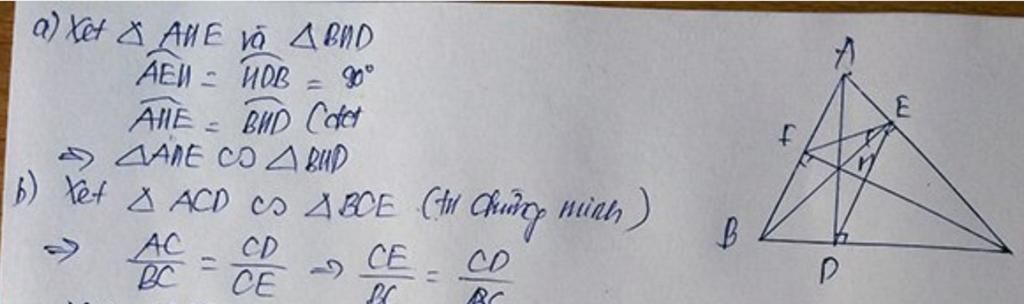 a) Xét △ AHE và △ BHD
AEH = HDB = 90°
AHE = BHD (đđ)
=> △AHE ∽ △BHD
b) Xét △ ACD ∽ △BCE (tự chứng minh)
=> AC/BC = CD/CE => CE/BC = CD/
A
E
F
H
B
D